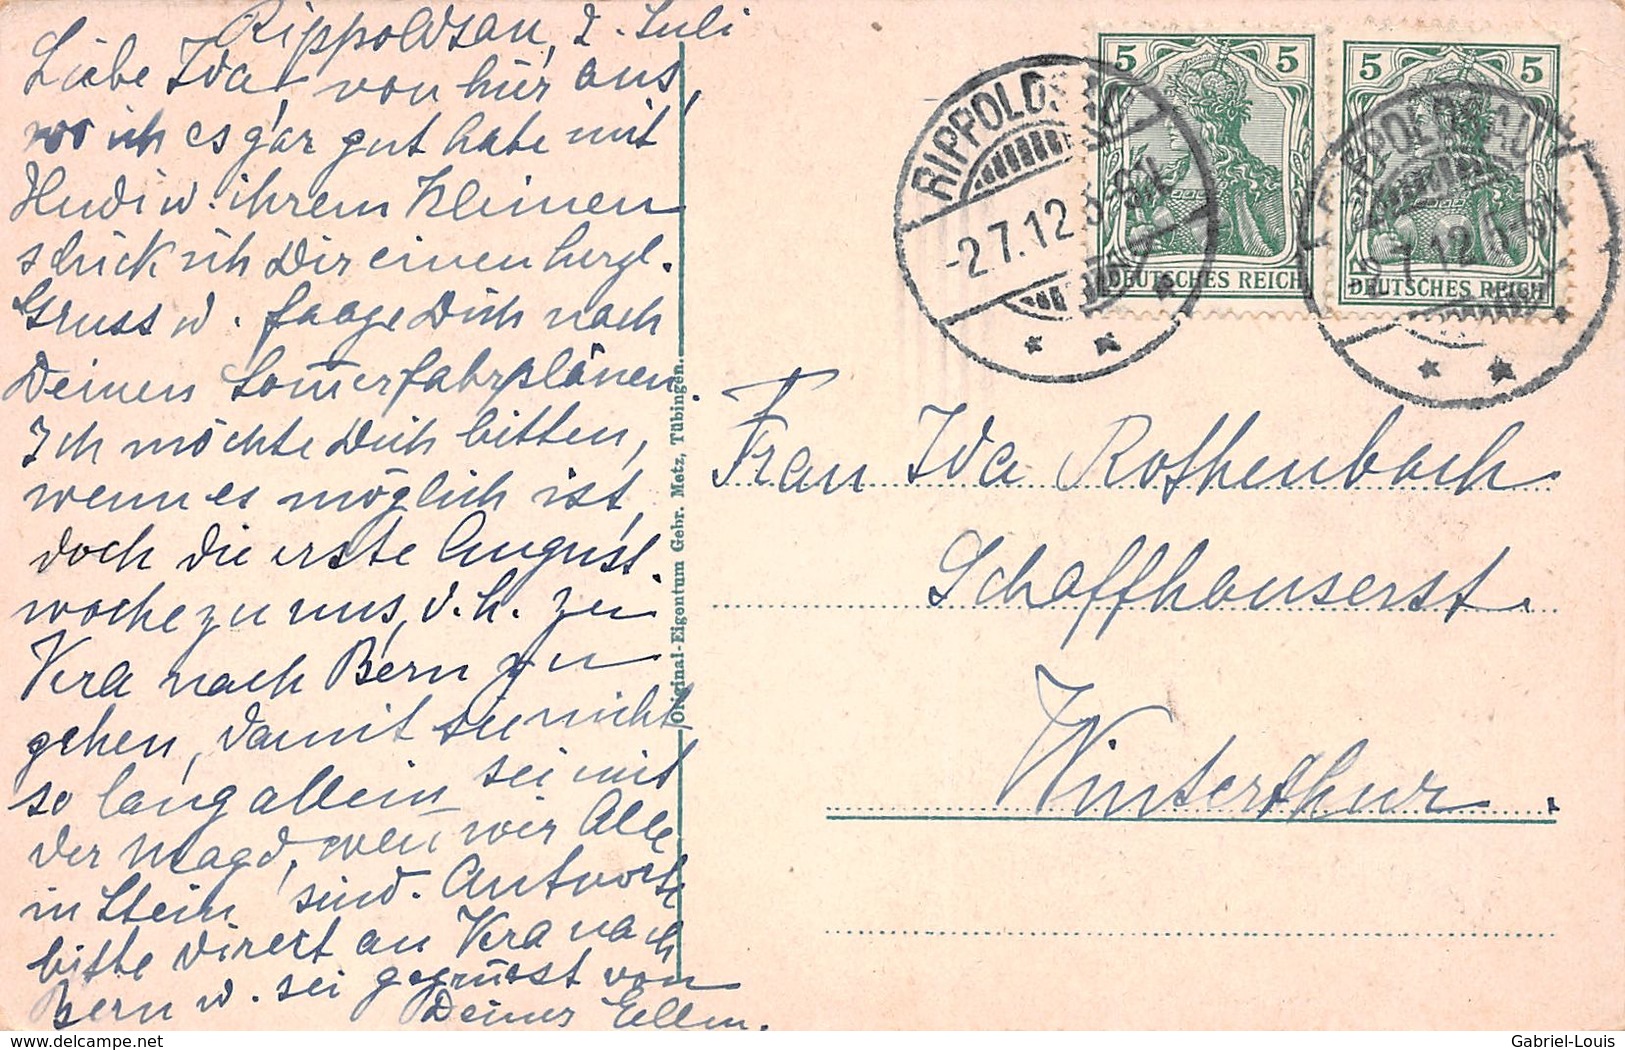 Rippoldsau, 2. Juli
Liebe Ida, von hier aus,
wo ich es gar gut habe mit
Hudi u. ihrem Kleinen
schick ich Dir einen herzl.
Gruss u. frage Dich nach
Deinen Somerfahrplänen.
Ich möchte Dich bitten,
wenn es möglich ist,
doch die erste August.
woche zu uns, d. h. zu
Vera nach Bern zu
gehen, damit sie nicht
so lang allein sei mit
der Magd, weil wir Alle
in Stein sind. Antwort
bitte direct an Vera nach
Bern u. sei gegrüsst von
Deiner Ellen.
Original-Eigentum Gebr. Metz, Tübingen.
RIPPOLDSAU
-2.7.12.
5 5
DEUTSCHES REICH
5 5
DEUTSCHES REICH
RIPPOLDSAU
2.7.12.
Frau Ida Rothenbach
Schaffhauserst.
Winterthur.
www.delcampe.net
Gabriel-Louis